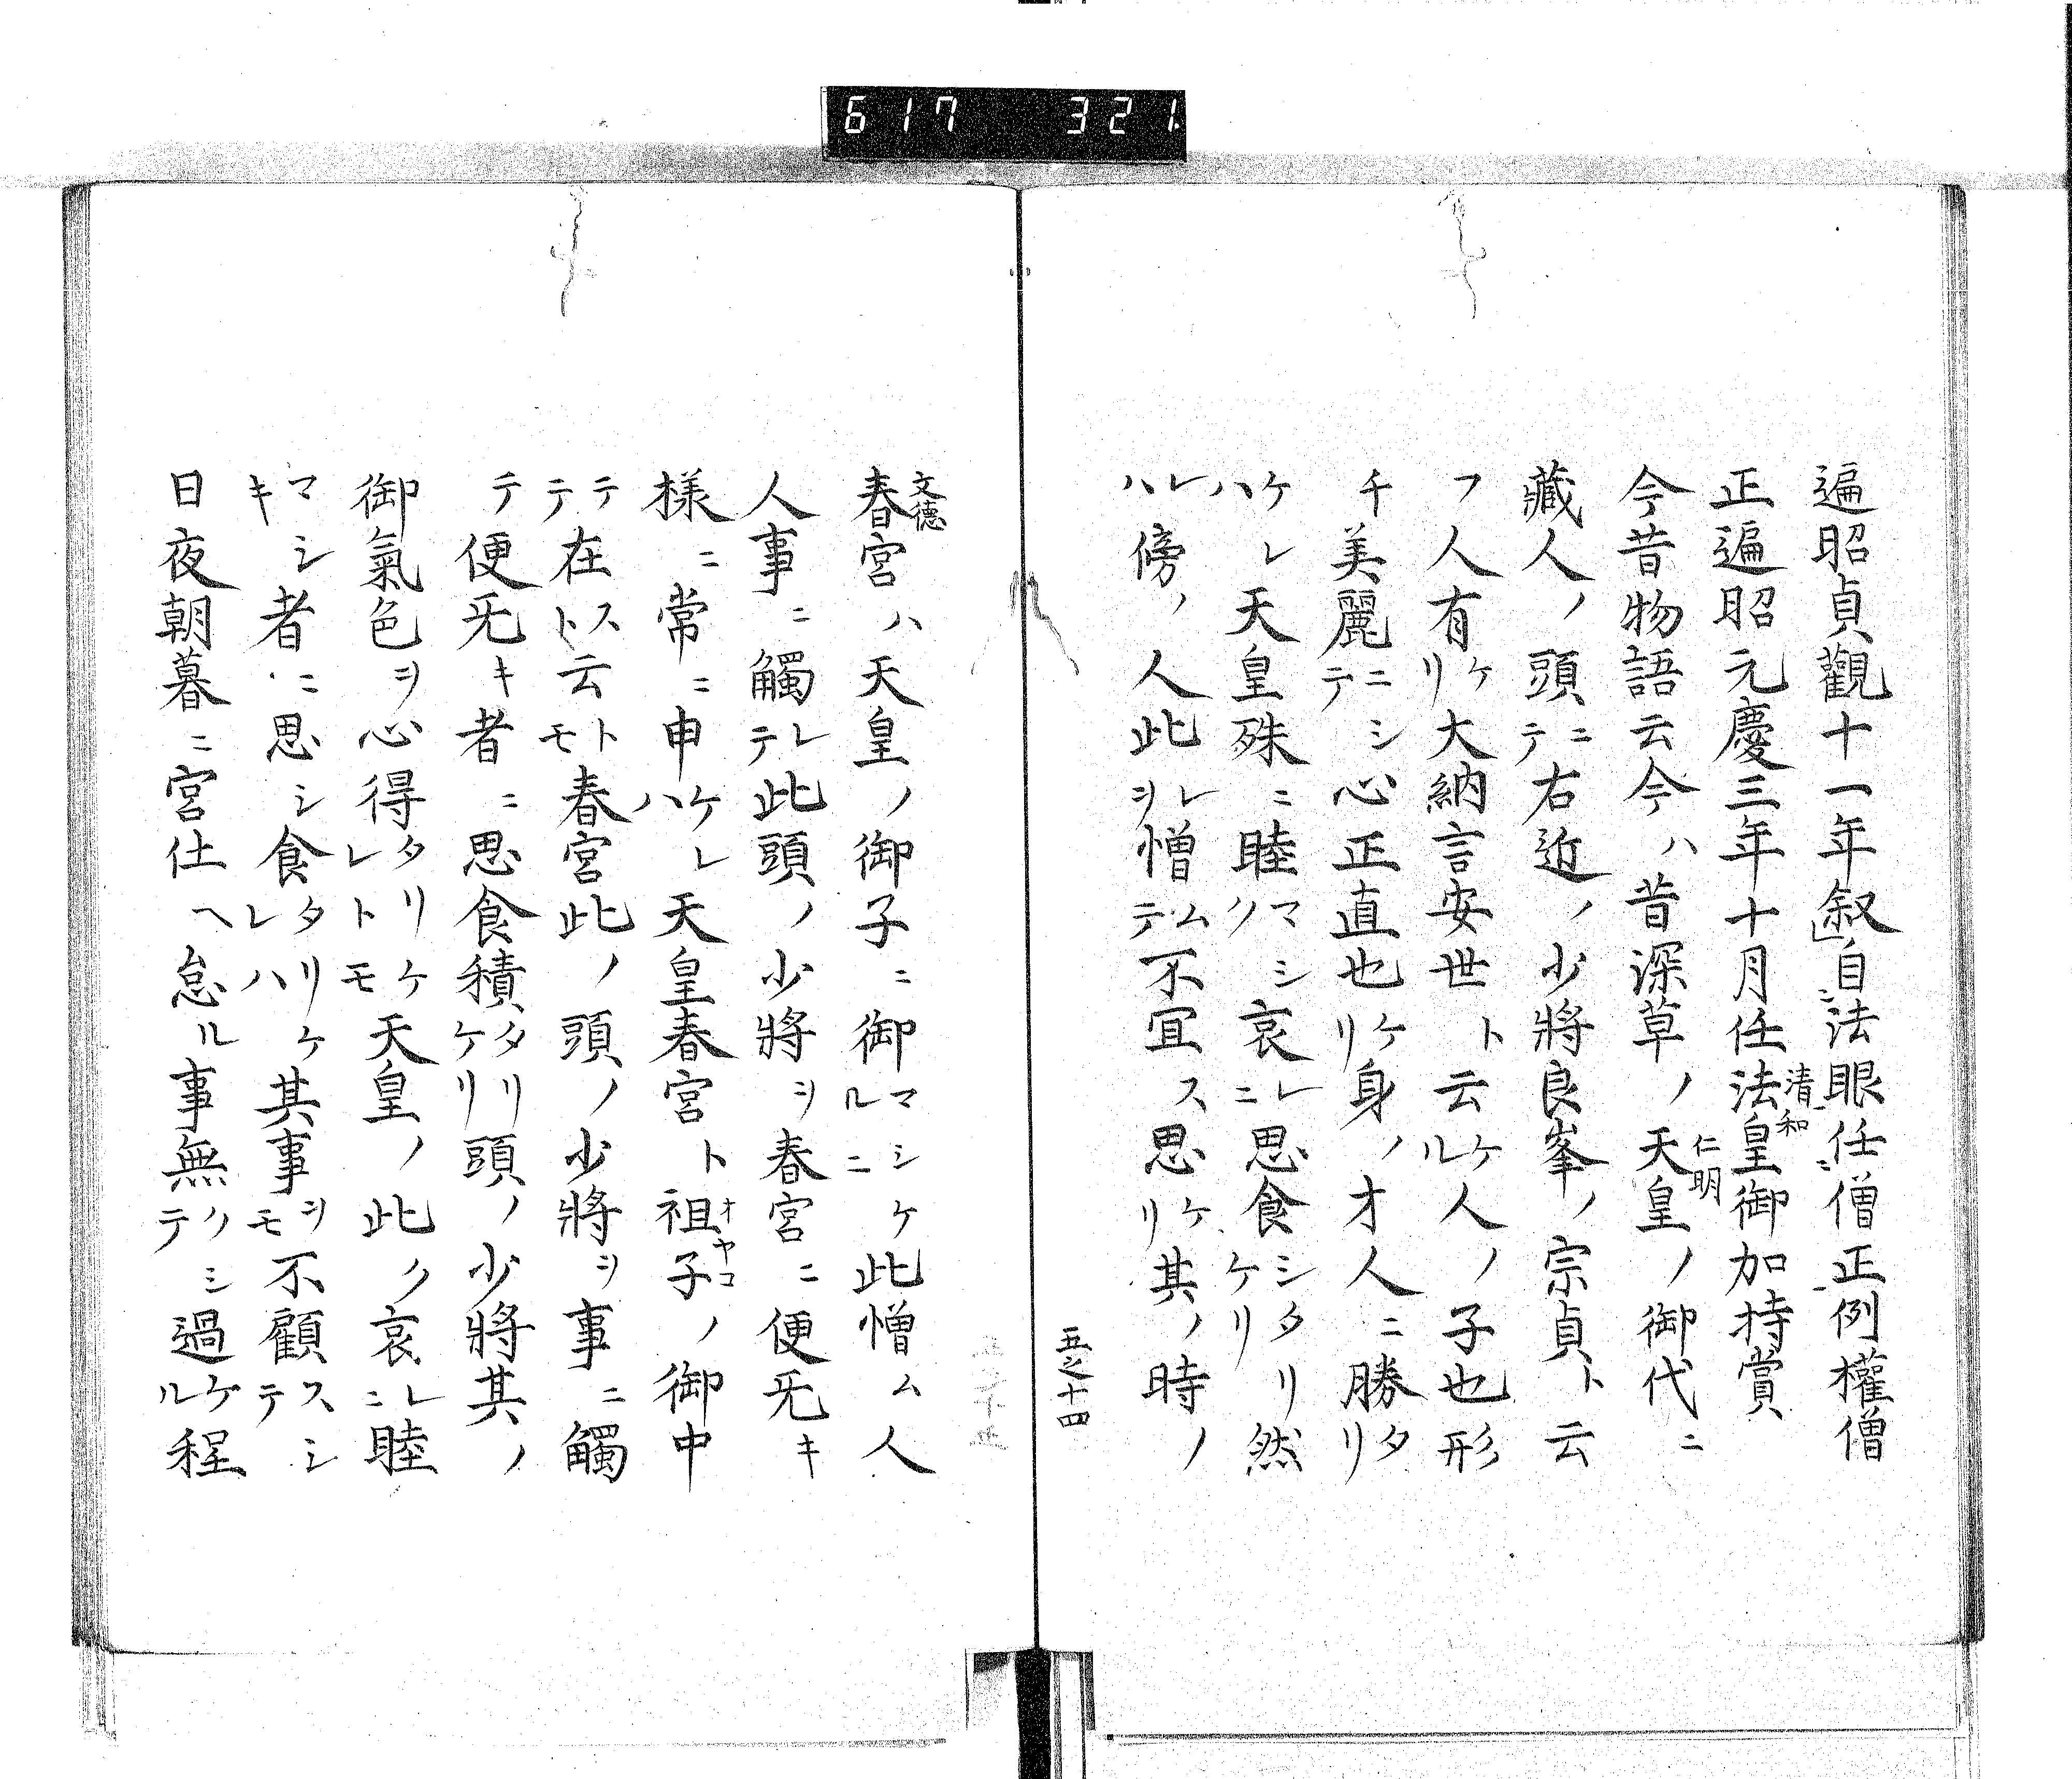 617 321
遍昭貞觀十一年叙自法眼任僧正例權僧
正遍昭元慶三年十月任法皇御加持賞
清和
今昔物語云今ハ昔深草ノ天皇ノ御代ニ
仁明
藏人ノ頭ニテ右近ノ少將良峯ノ宗貞ト云
フ人有ケリ大納言安世ト云ケル人ノ子也形
チ美麗ニシテ心正直也ケリ身ノ才人ニ勝タリ
ケレハ天皇殊ニ睦マシク哀レニ思食シタリケリ然
レハ傍ノ人此レヲ憎ムテ不宜ス思ケリ其ノ時ノ
五之十四
春宮ハ天皇ノ御子ニ御マシケルニ此憎ム人
文德
人事ニ觸レテ此頭ノ少將ヲ春宮ニ便旡キ
樣ニ常ニ申ケレハ天皇春宮ト祖子ノ御中
オヤコ
テテ在ストト云トモ春宮此ノ頭ノ少將ヲ事ニ觸
テ便旡キ者ニ思食積タリケリ頭ノ少將其ノ
御氣色ヲ心得タリケレトモ天皇ノ此ク哀レニ睦
マシキ者ニ思シ食タリケレハ其事ヲモ不顧スシテ
日夜朝暮ニ宮仕ヘ怠ル事無クシテ過ケル程